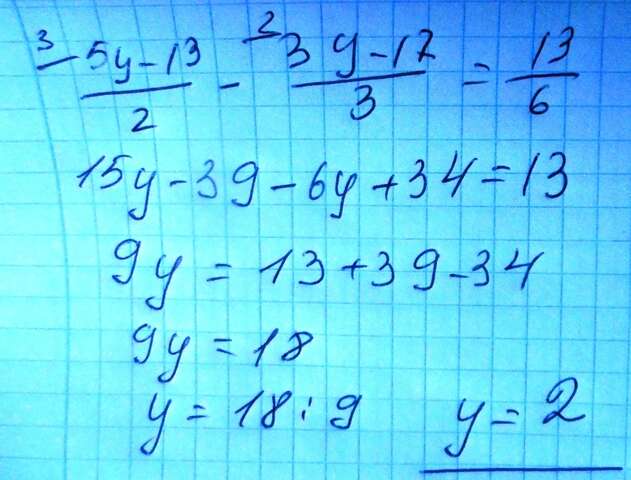 3 5y-13 / 2 - 2 3y-17 / 3 = 13 / 6
15y-39-6y+34=13
9y = 13+39-34
9y = 18
y = 18:9 y = 2